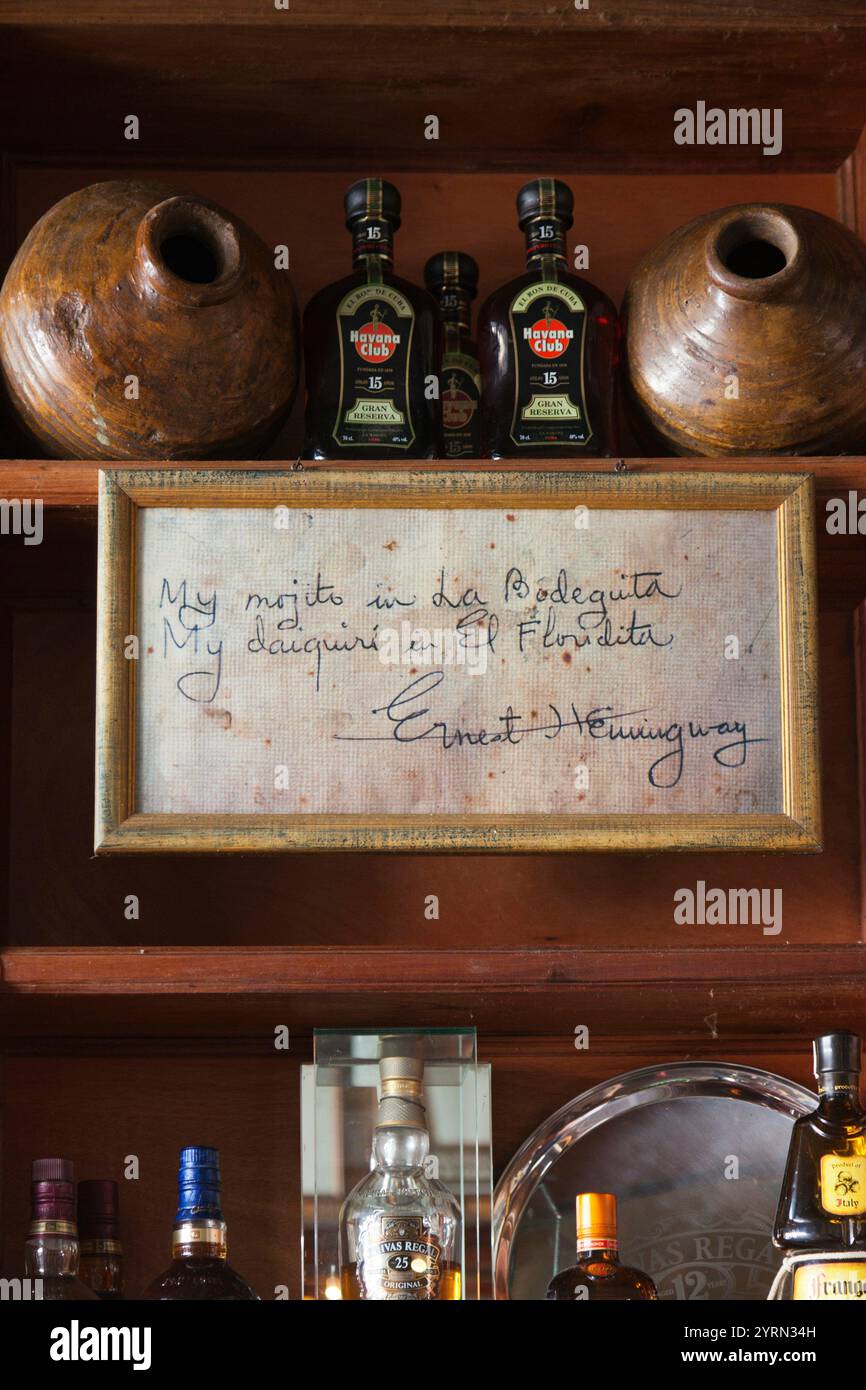 15
15
EL RON DE CUBA
EL RON DE CUBA
Havana
Club
Havana
Club
15
15
GRAN
RESERVA
GRAN
RESERVA
My mojito in La Bodeguita
My daiquirí en El Floridita
Ernest Hemingway
CHIVAS REGAL
25
ORIGINAL
CHIVAS REGAL
12
product of
Italy
alamy
Image ID: 2YRN34H
www.alamy.com